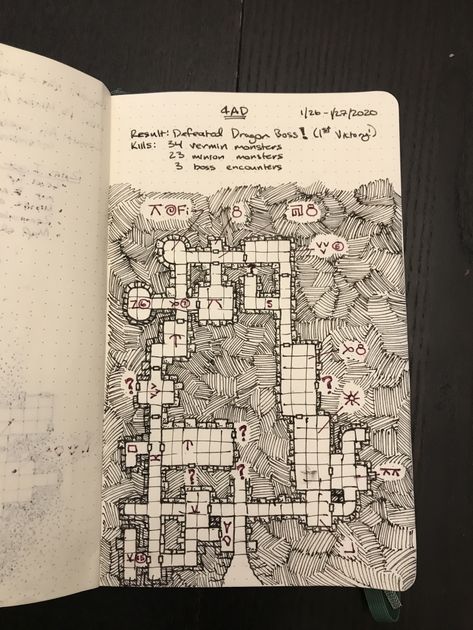 4AD
1/26-1/27/2020
Result: Defeated Dragon Boss! (1st Victory!)
Kills: 34 vermin monsters
23 minion monsters
3 boss encounters
?
?
?
?
?